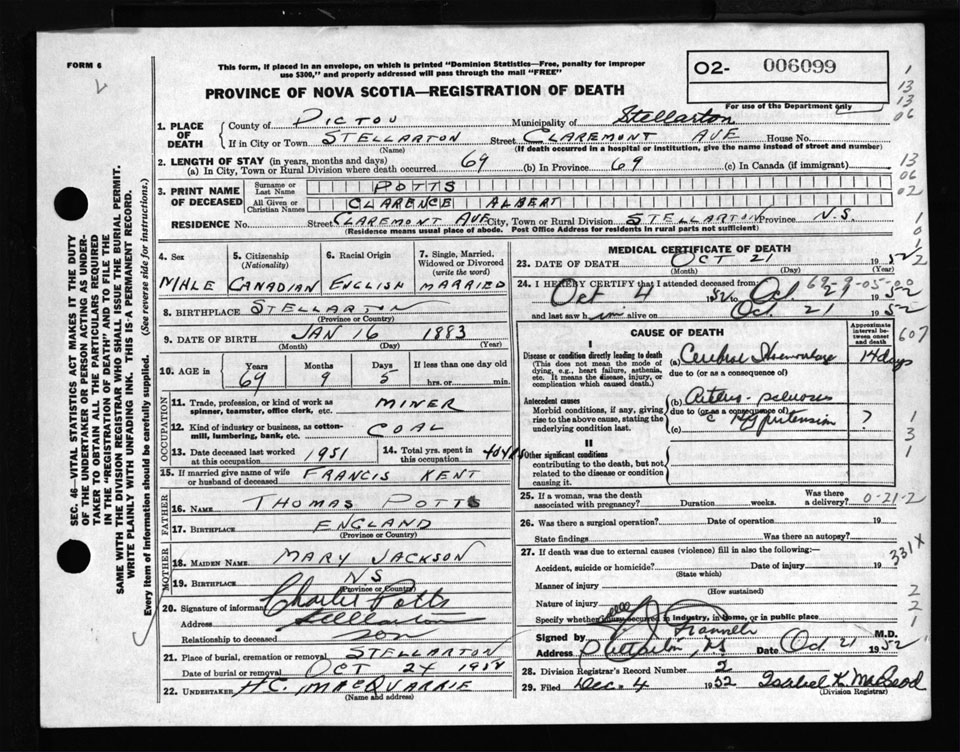 FORM 6
This form, if placed in an envelope, on which is printed "Dominion Statistics—Free, penalty for improper
use $300," and properly addressed will pass through the mail "FREE"
PROVINCE OF NOVA SCOTIA—REGISTRATION OF DEATH
O2- 006099
For use of the Department only
1. PLACE OF DEATH { County of PICTOU Municipality of Stellarton
If in City or Town STELLARTON Street CLAREMONT AVE House No.
(Name) (If death occurred in a hospital or institution, give the name instead of street and number)
2. LENGTH OF STAY (in years, months and days)
(a) In City, Town or Rural Division where death occurred 69 (b) In Province 69 (c) In Canada (if immigrant)
3. PRINT NAME OF DECEASED { Surname or Last Name POTTS
All Given or Christian Names CLARENCE ALBERT
RESIDENCE No. Street CLAREMONT AVE City, Town or Rural Division STELLARTON Province N.S.
(Residence means usual place of abode. Post Office Address for residents in rural parts not sufficient)
4. Sex MALE
5. Citizenship (Nationality) CANADIAN
6. Racial Origin ENGLISH
7. Single, Married, Widowed or Divorced (write the word) MARRIED
8. BIRTHPLACE STELLARTON
(Province or Country)
9. DATE OF BIRTH JAN 16 1883
(Month) (Day) (Year)
10. AGE in { Years 69 Months 9 Days 5 If less than one day old
hrs. or min.
OCCUPATION
11. Trade, profession, or kind of work as
spinner, teamster, office clerk, etc. MINER
12. Kind of industry or business, as cotton-
mill, lumbering, bank, etc. COAL
13. Date deceased last worked
at this occupation 1951
14. Total yrs. spent in
this occupation
15. If married give name of wife
or husband of deceased FRANCIS KENT
FATHER
16. Name THOMAS POTTS
17. Birthplace ENGLAND
(Province or Country)
MOTHER
18. Maiden Name MARY JACKSON
19. Birthplace NS
(Province or Country)
20. Signature of informant Charlie Potts
Address Stellarton
Relationship to deceased son
21. Place of burial, cremation or removal STELLARTON
Date of burial or removal OCT 24 195
22. Undertaker H.C. MACQUARRIE
(Name and address)
MEDICAL CERTIFICATE OF DEATH
23. DATE OF DEATH OCT 21 1952
(Month) (Day) (Year)
24. I HEREBY CERTIFY that I attended deceased from:
Oct 4 1952 to Oct. 1952
and last saw him alive on Oct. 21 1952
CAUSE OF DEATH
Approximate interval between onset and death
I
Disease or condition directly leading to death
(This does not mean the mode of
dying, e.g., heart failure, asthenia,
etc. It means the disease, injury, or
complication which caused death.)
(a) Cerebral Haemorrhage 14 days
due to (or as a consequence of)
Antecedent causes
Morbid conditions, if any, giving
rise to the above cause, stating the
underlying condition last.
(b) Arterio-sclerosis
due to (or as a consequence of)
c Hypertension ?
(c)
II
Other significant conditions
contributing to the death, but not
related to the disease or condition
causing it.
25. If a woman, was the death
associated with pregnancy? Duration weeks. Was there a delivery? 0-21-2
26. Was there a surgical operation? Date of operation 19
State findings Was there an autopsy?
27. If death was due to external causes (violence) fill in also the following:—
Accident, suicide or homicide? Date of injury 19
(State which)
Manner of injury
(How sustained)
Nature of injury
Specify whether injury occurred in industry, in home, or in public place
Signed by M.D.
Address Date Oct. 21 1952
28. Division Registrar's Record Number 2
29. Filed Dec. 4 1952 Isabel K. MacLeod
(Division Registrar)
SEC. 46—VITAL STATISTICS ACT MAKES IT THE DUTY
OF THE UNDERTAKER OR PERSON ACTING AS UNDER-
TAKER TO OBTAIN ALL THE PARTICULARS REQUIRED
IN THE "REGISTRATION OF DEATH" AND TO FILE THE
SAME WITH THE DIVISION REGISTRAR WHO SHALL ISSUE THE BURIAL PERMIT.
WRITE PLAINLY WITH UNFADING INK. THIS IS A PERMANENT RECORD.
Every item of information should be carefully supplied. (See reverse side for instructions.)
1
13
13
06
13
06
02
1
0
1
2
607
1
3
1
331X
2
2
1